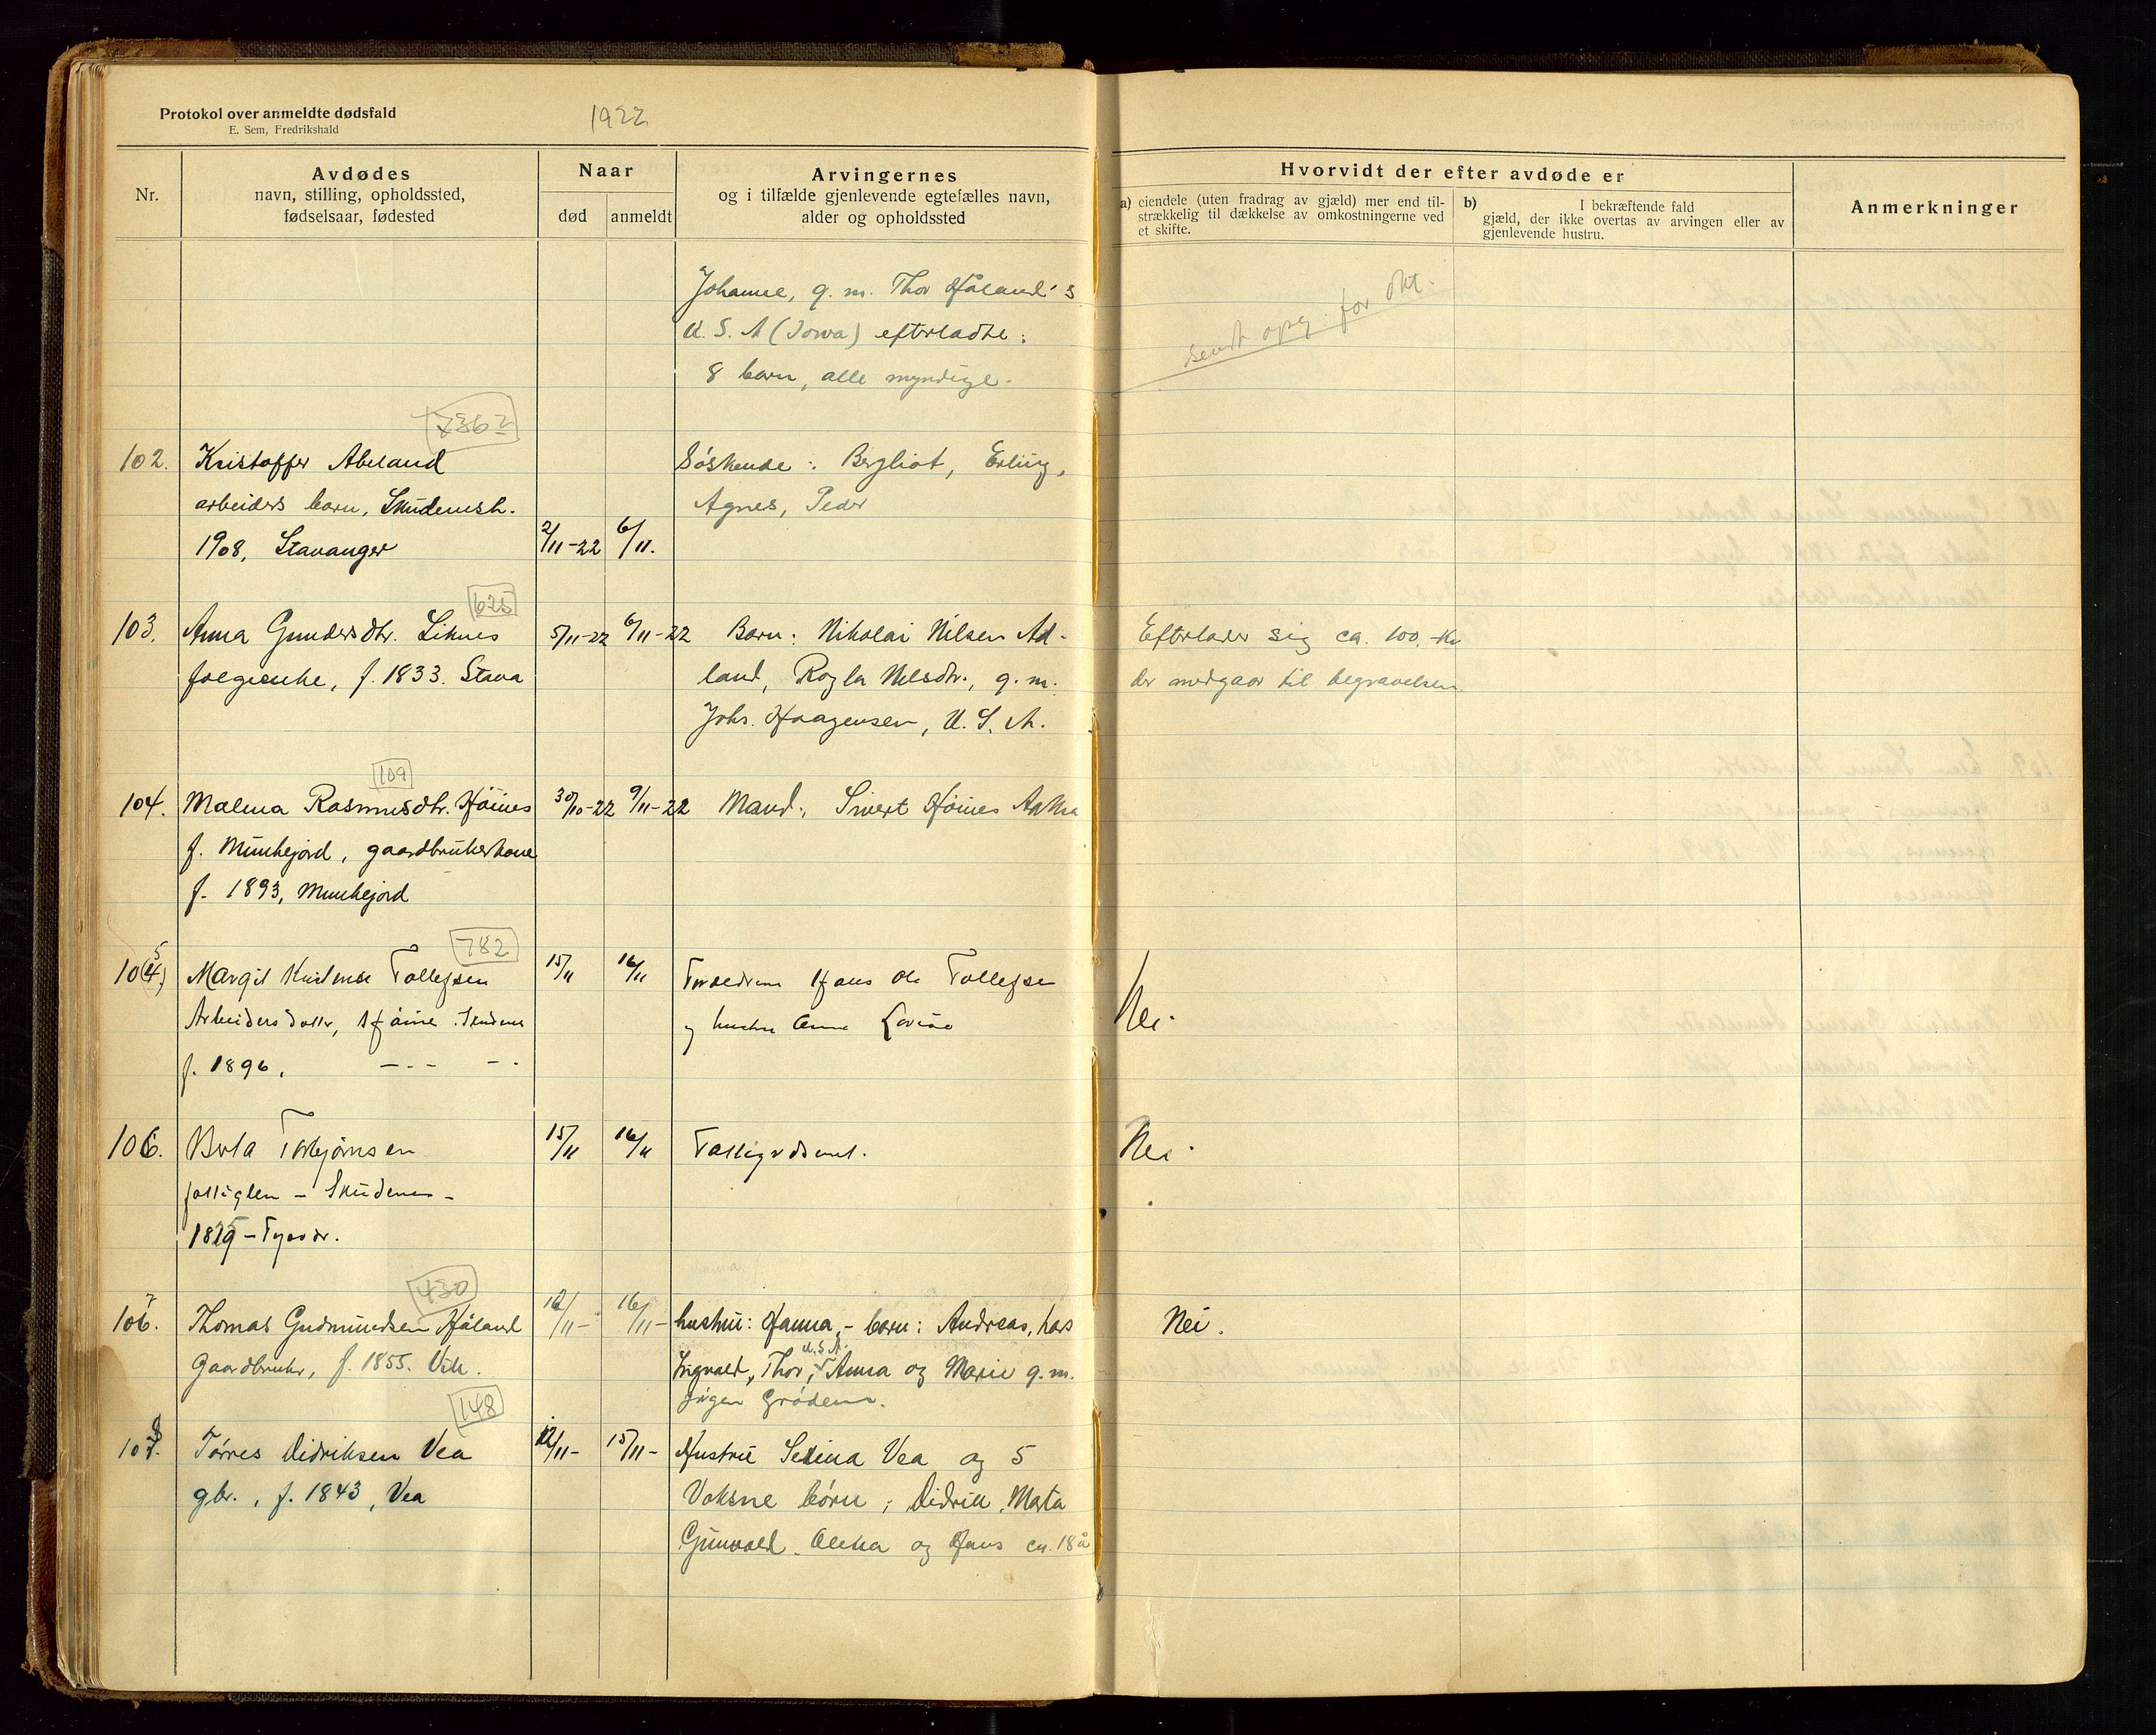 Protokol over anmeldte dødsfald
E. Sem, Fredrikshald
1922
Nr.
Avdødes
navn, stilling, opholdssted,
fødselsaar, fødested
Naar
død
anmeldt
Arvingernes
og i tilfælde gjenlevende egtefælles navn,
alder og opholdssted
Hvorvidt der efter avdøde er
a) eiendele (uten fradrag av gjæld) mer end til-
strækkelig til dækkelse av omkostningerne ved
et skifte.
b) I bekræftende fald
gjæld, der ikke overtas av arvingen eller av
gjenlevende hustru.
Anmerkninger
Johanne, g. m. Thor Håland's
U. S. A (Iowa) efterladte:
8 barn, alle myndige.
sendt opg. for
102.
Kristoffer Abeland
arbeiders barn, Skudenesh.
1908, Stavanger
2/11-22
6/11.
Søskende: Bergliot, Erling,
Agnes, Peder
625
103.
Anna Gundersdtr. Liknes
f. 1833. Stava
5/11-22
6/11-22
Barn: Nikolai Nilsen Ad-
land, Nilsdtr., g. m.
Johs. Haagensen, U. S. A.
Efterlader sig ca. 100.- Kr
der medgaar til begravelsen.
109
104.
Malena Rasmusdtr. Høines
f. Munkejord, gaardbrukerkone
f. 1893, Munkejord
30/10-22
9/11-22
Mand: Sivert Høines
782
10(4)5
Margit Tollefsen
Arbeidersdatter,
f. 1896. -.- -.
15/11
16/11
Forældrene Hans Ole Tollefsen
og hustru Anne
Nei.
106.
Berta Torbjørnsen
- Skudenes -
15/11
16/11
Nei.
430
106. 7
Thomas Gudmundsen Håland
Gaardbruker, f. 1855. Vik.
12/11-
16/11-
hustru: Hanna, - barn: Andreas, Lars
Ingvald, Thor, U.S.A. Anna og Marie g. m.
Nei.
148
107. 8
Tørres Didriksen Vea
gbr., f. 1843, Vea
12/11-
15/11-
Hustru Selina Vea og 5
Voksne børn; Didrik, Marta
Gunvald. Olena og Hans ca. 18 å